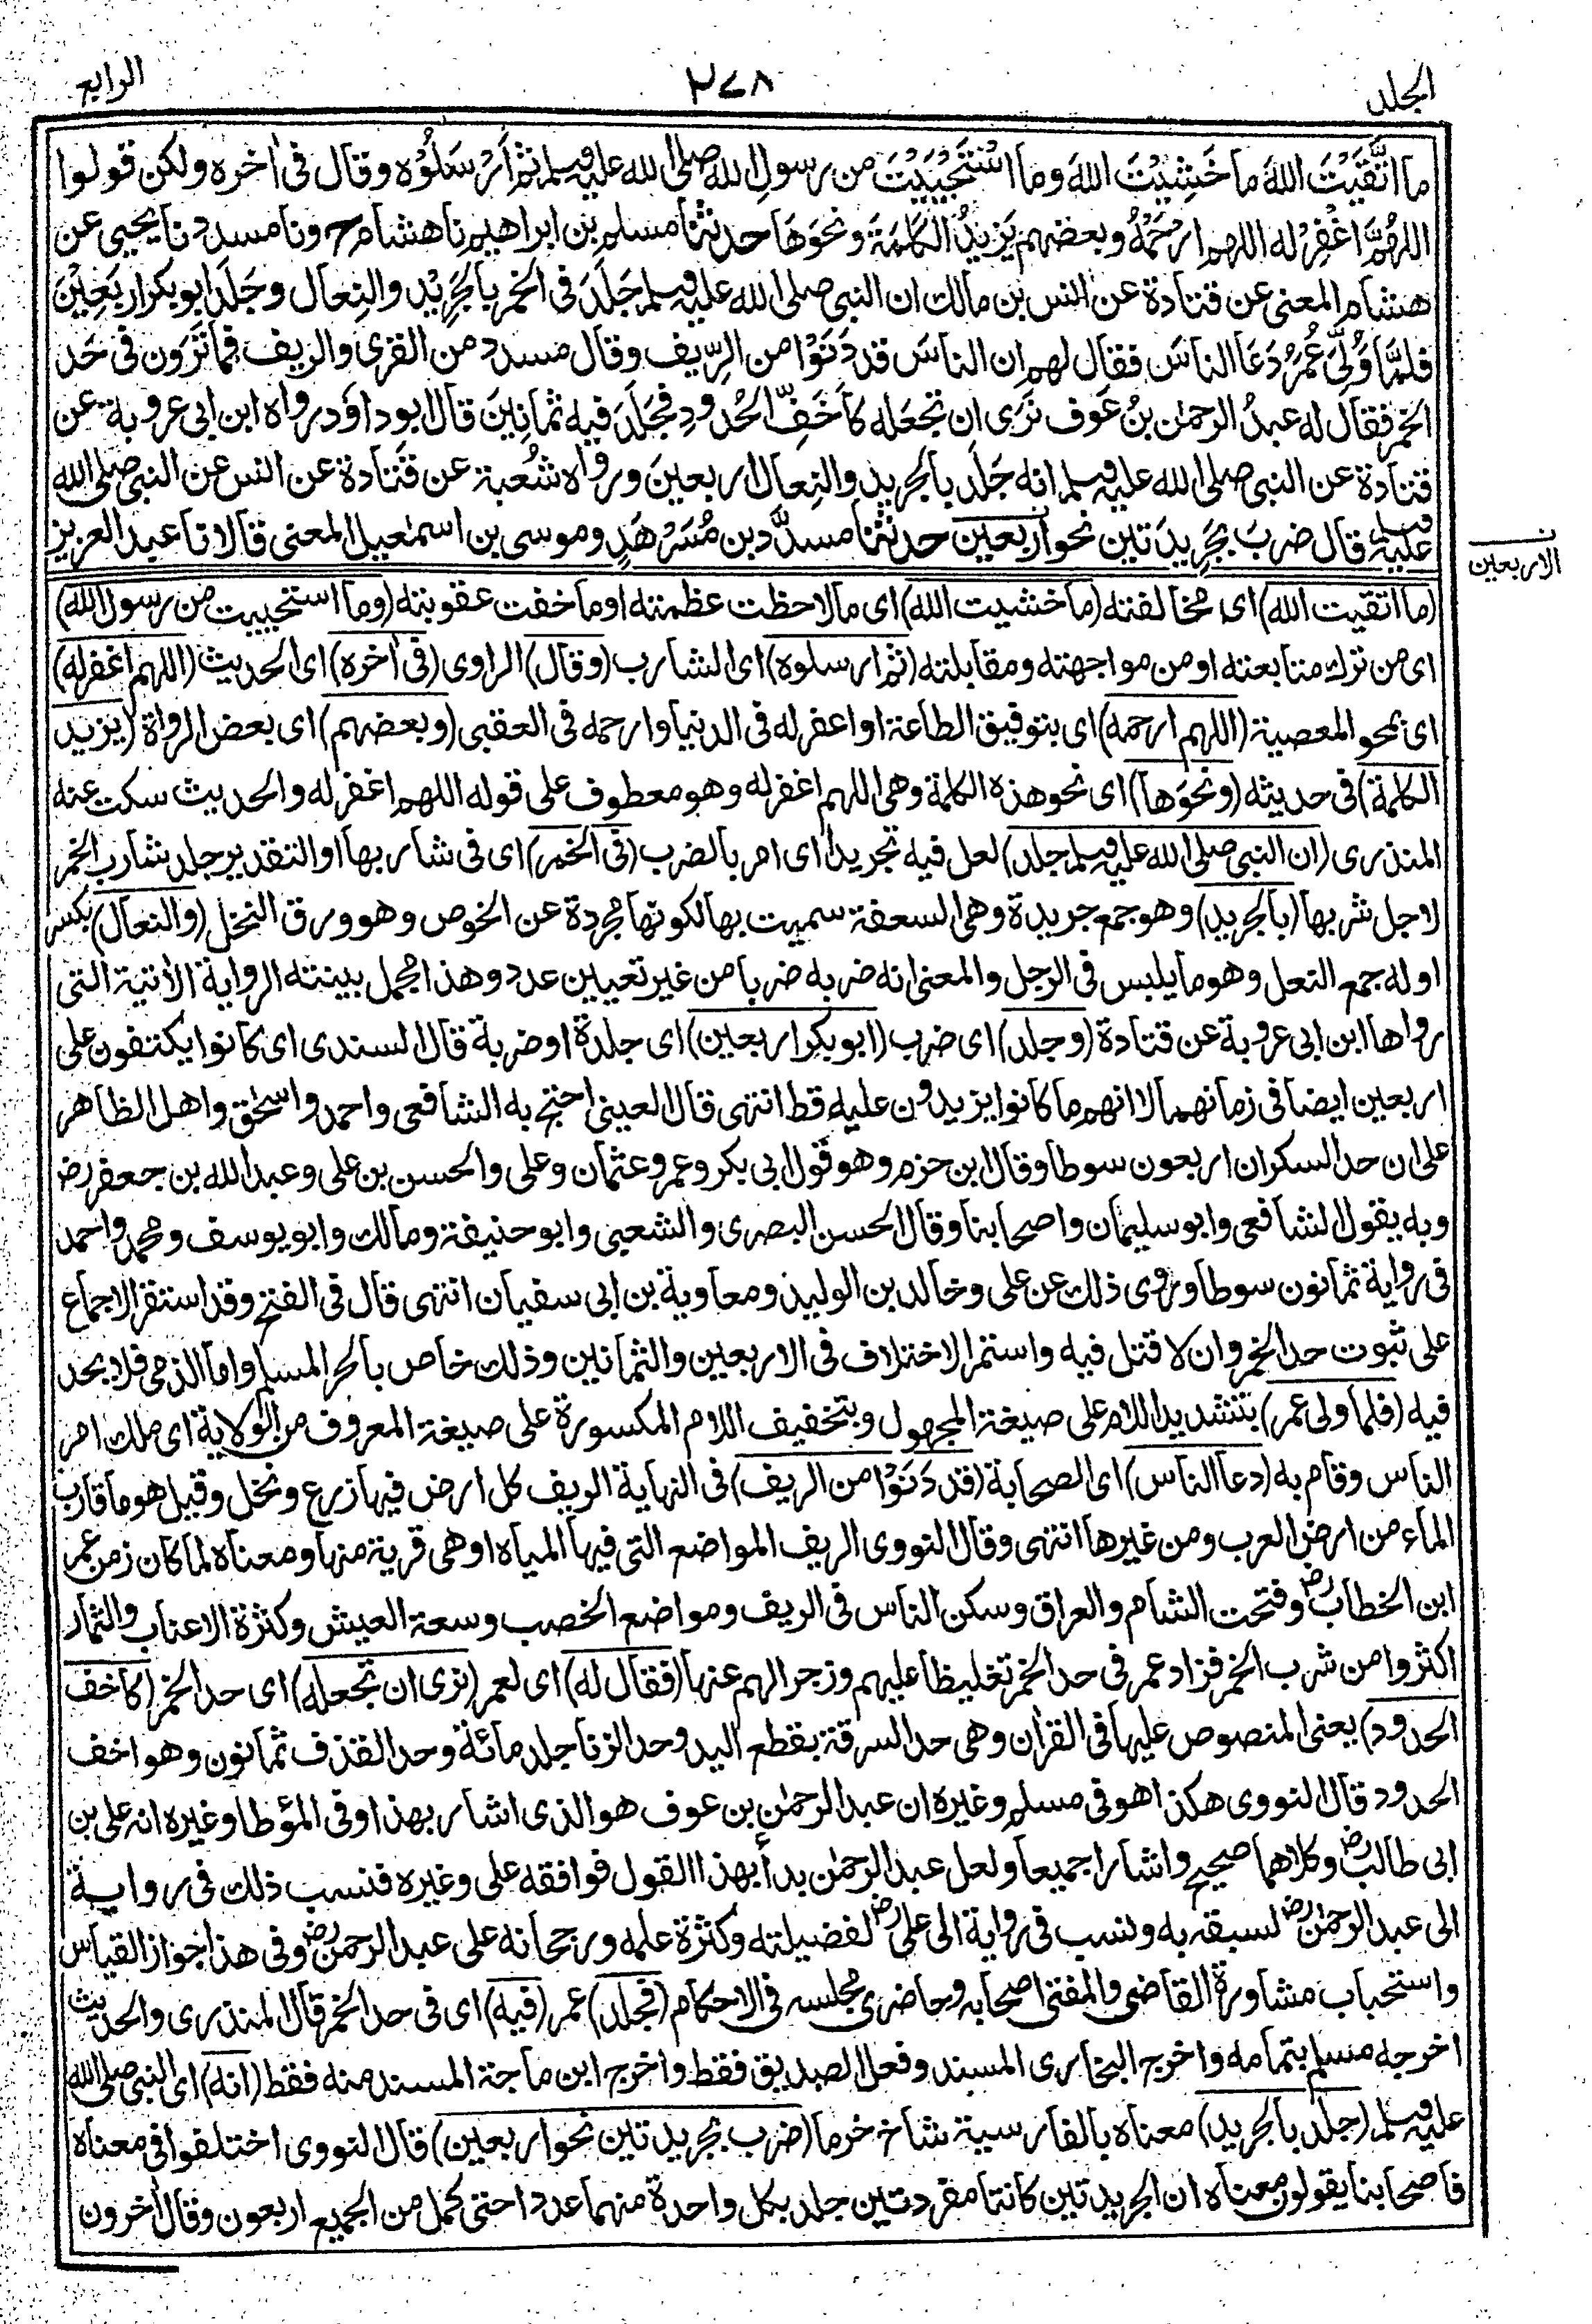 الجلد
٢٧٨
الرابع
ما اتَّقَيْتَ اللهَ ما خَشِيْتَ اللهَ وما اسْتَحْيَيْتَ من رسولِ الله صلى الله عليه وسلم ثم اَرْسَلُوْه وقال فى اٰخره ولكن قولوا
اللهُمَّ اغْفِرْ له اللهم ارْحَمْهُ وبعضهم يَزِيدُ الكلمةَ ونحوَهَا حدثنا مسلم بن ابراهيم نا هشام ح ونا مسدد نا يحيى عن
هشام المعنى عن قتادة عن انس بن مالك ان النبى صلى الله عليه وسلم جَلَدَ فى الخمر بالجَرِيْد والنِعال وجَلَدَ ابو بكر اربَعِيْنَ
فلمَّا وُلِّىَ عُمَرُ دَعَا الناسَ فقال لهم ان الناسَ قد دَنَوْا من الرِّيف وقال مسدد من القرى والريف فما تَرَون فى حَد
الخمر فقال له عبدُ الرحمٰن بنُ عَوف نَرَى ان تجعَله كاَخَفِّ الحُدودِ فجَلَدَ فيه ثمانِينَ قال ابو داؤد رواه ابن ابى عروبة عن
قتادة عن النبى صلى الله عليه وسلم انه جَلَد بالجريد والنِعال اربعينَ ورواه شُعبة عن قَتادة عن انس عن النبى صلى الله
عليه وسلم قال ضربَ بجَرِيدَتين نحو اربعين حدثنا مسدَّد بن مُسَرْهَدٍ وموسى بن اسمٰعيل المعنى قالا نا عبد العزيز
الاربعين
(ما اتقيت الله) اى مخالفته (ما خشيت الله) اى ما لاحظت عظمته او ما خفت عقوبته (وما استحييت من رسول الله)
اى من ترك متابعته او من مواجهته ومقابلته (ثم ارسلوه) اى الشارب (وقال) الراوى (فى اٰخره) اى الحديث (اللهم اغفرله)
اى بمحو المعصية (اللهم ارحمه) اى بتوفيق الطاعة او اغفر له فى الدنيا وارحمه فى العقبى (وبعضهم) اى بعض الرواة (يزيد
الكلمة) فى حديثه (ونحوَها) اى نحو هذه الكلمة وهى اللهم اغفر له وهو معطوف على قوله اللهم اغفر له والحديث سكت عنه
المنذرى (ان النبى صلى الله عليه وسلم جلد) لعل فيه تجريدا اى امر بالضرب (فى الخمر) اى فى شاربها او التقدير جلد شارب الخمر
لاجل شربها (بالجريد) وهو جمع جريدة وهى السعفة سميت بها لكونها مجردة عن الخوص وهو ورق النخل (والنعال) بكسر
اوله جمع النعل وهو ما يلبس فى الرجل والمعنى انه ضربه ضربا من غير تعيين عدد وهذا مجمل بينته الرواية الاٰتية التى
رواها ابن ابى عروبة عن قتادة (وجلد) اى ضرب (ابو بكر اربعين) اى جلدة او ضربة قال السندى اى كانوا يكتفون على
اربعين ايضا فى زمانهما لا انهم ما كانوا يزيدون عليه قط انتهى قال العينى احتج به الشافعى واحمد واسحٰق واهل الظاهر
على ان حد السكران اربعون سوطا وقال ابن حزم وهو قول ابى بكر وعمر وعثمان وعلى والحسن بن على وعبد الله بن جعفر رض
وبه يقول الشافعى وابو سليمان واصحابنا وقال الحسن البصرى والشعبى وابو حنيفة ومالك وابو يوسف ومحمد واحمد
فى رواية ثمانون سوطا وروى ذلك عن على وخالد بن الوليد ومعاوية بن ابى سفيان انتهى قال فى الفتح وقد استقر الاجماع
على ثبوت حد الخمر وان لا قتل فيه واستمر الاختلاف فى الاربعين والثمانين وذلك خاص بالحر المسلم واما الذمى فلا يحد
فيه (فلما ولى عمر) بتشديد اللام على صيغة المجهول وبتخفيف اللام المكسورة على صيغة المعروف من الولاية اى ملك امر
الناس وقام به (دعا الناس) اى الصحابة (قد دَنَوْا من الريف) فى النهاية الريف كل ارض فيها زرع ونخل وقيل هو ما قارب
الماء من ارض العرب ومن غيرها انتهى وقال النووى الريف المواضع التى فيها المياه او هى قرية منها ومعناه لما كان زمن عمر
ابن الخطاب رض وفتحت الشام والعراق وسكن الناس فى الريف ومواضع الخصب وسعة العيش وكثرة الاعناب والثمار
اكثروا من شرب الخمر فزاد عمر فى حد الخمر تغليظا عليهم وزجرا لهم عنها (فقال له) اى لعمر (نرى ان تجعله) اى حد الخمر (كاخف
الحدود) يعنى المنصوص عليها فى القراٰن وهى حد السرقة بقطع اليد وحد الزنا جلد مائة وحد القذف ثمانون وهو اخف
الحدود قال النووى هكذا هو فى مسلم وغيره ان عبد الرحمٰن بن عوف هو الذى اشار بهذا وفى المؤطا وغيره انه على بن
ابى طالب رض وكلاهما صحيح واشارا جميعا ولعل عبد الرحمٰن بدأ بهذا القول فوافقه على وغيره فنسب ذلك فى رواية
الى عبد الرحمٰن رض لسبقه به ونسب فى رواية الى على رض لفضيلته وكثرة علمه ورجحانه على عبد الرحمن رض وفى هذا جواز القياس
واستحباب مشاورة القاضى والمفتى اصحابه وحاضرى مجلسه فى الاحكام (فجلد) عمر (فيه) اى فى حد الخمر قال المنذرى والحديث
اخرجه مسلم بتمامه واخرج البخارى المسند وفعل الصديق فقط واخرج ابن ماجة المسند منه فقط (انه) اى النبى صلى الله
عليه وسلم (جلد بالجريد) معناه بالفارسية شاخ خرما (ضرب بجريدتين نحو اربعين) قال النووى اختلفوا فى معناه
فاصحابنا يقولون معناه ان الجريدتين كانتا مفردتين جلد بكل واحدة منهما عددا حتى كمل من الجميع اربعون وقال اٰخرون